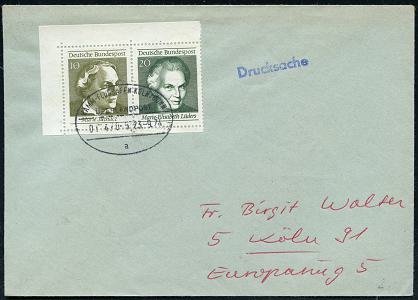 Deutsche Bundespost Deutsche Bundespost
10 20
Marie Juchacz Marie-Elisabeth Lüders
23.9.74
a
Drucksache
Fr. Birgit Walter
5 Köln 91
Europaring 5